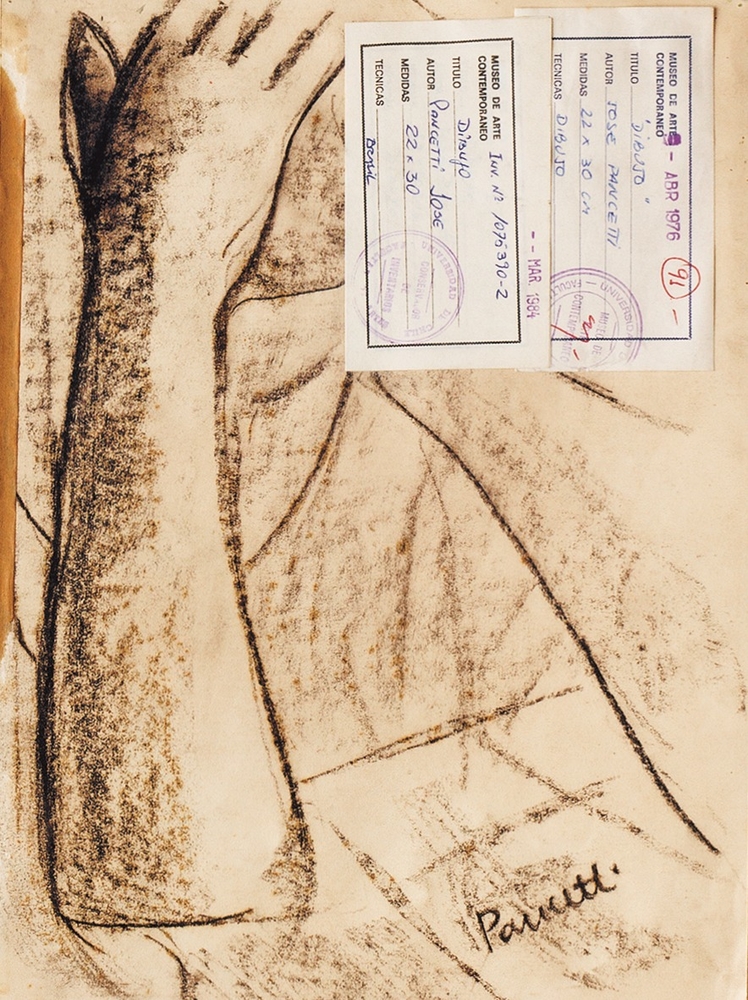 MUSEO DE ARTE
CONTEMPORANEO
Inv. Nº 1075390-2
TITULO Dibujo
AUTOR Pancetti Jose
MEDIDAS 22 x 30
TECNICAS
Brasil
-- MAR. 1984
UNIVERSIDAD DE CHILE
MUSEO DE ARTE
CONTEMPORANEO
- ABR 1976
91 -
TITULO "DIBUJO"
AUTOR JOSE PANCETTI
MEDIDAS 22 x 30 CM
TECNICAS DIBUJO
UNIVERSIDAD
MUSEO DE
Pancetti.